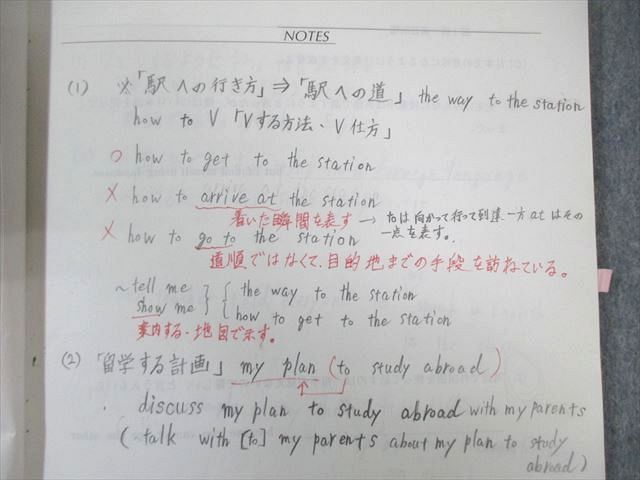 NOTES
(1) ※「駅への行き方」⇒「駅への道」 the way to the station
how to V 「Vする方法、V仕方」
○ how to get to the station
× how to arrive at the station
着いた瞬間を表す → toは向かって行って到達 一方 atはその
一点を表す。
× how to go to the station
道順ではなくて、目的地までの手段を訪ねている。
~ tell me } { the way to the station
show me } { how to get to the station
案内する・地図で示す。
(2) 「自学する計画」 my plan (to study abroad)
. discuss my plan to study abroad with my parents
( talk with [to] my parents about my plan to study
abroad)